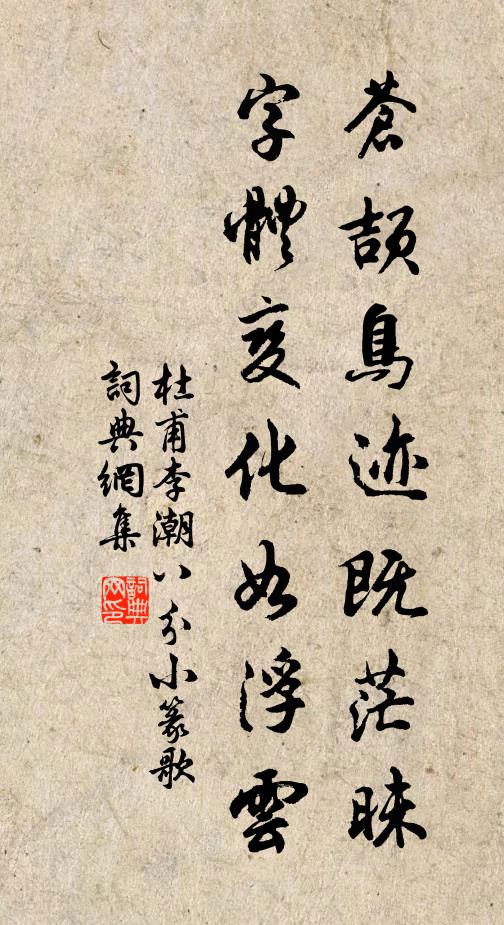 蒼頡鳥迹既茫昧
字體變化如浮雲
杜甫李潮八分小篆歌
詞典網集
詞典
網印